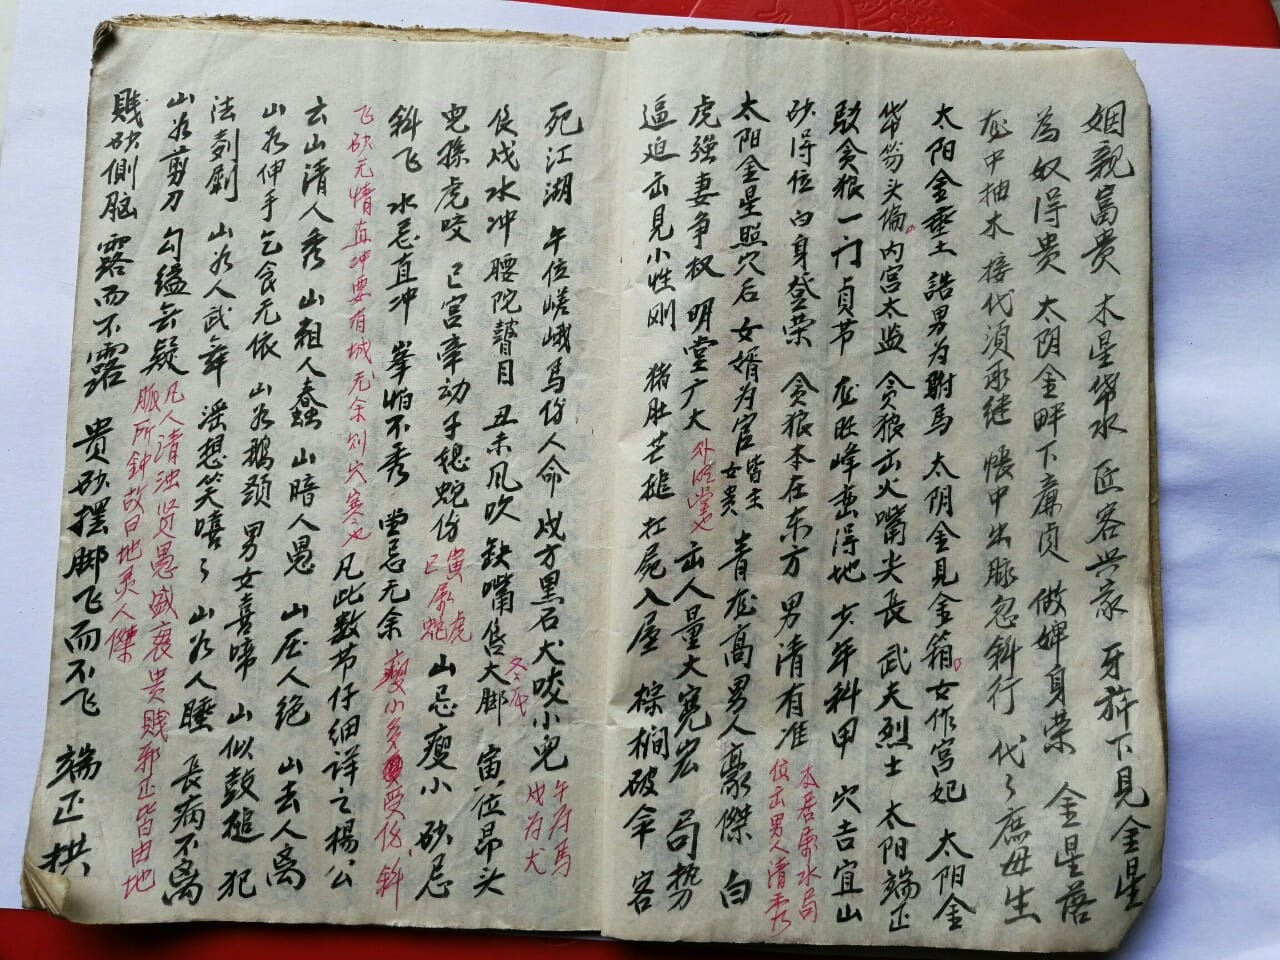 姻親富贵 木星帶水 匠客兴家 牙旂下見金星
為奴得贵 太阴金畔下廉貞 做婢身荣 金星落
在中抽木 接代須承继 帳中出脉忽斜行 代々庶母生
太阳金垂土 誥男为駙馬 太阴金見金箱 女作宫妃 太阳金
帶芴头偏 内宫太监 贪狼出火嘴尖長 武夫烈士 太阳端正
馱贪狼 一门貞节 左旺峰垂得地 少年科甲 穴吉宜山
砂得位 白身登荣 贪狼本在东方 男清有准
木居东水局
位出男人清秀
太阳金星照穴后 女婿为官
皆主
女贵
青龙高男人豪傑 白
虎强妻争权 明堂广大
外明堂也
出人量大寬宏 局势
逼迫 出見小性刚 猪肚芒槌 扛屍入屋 棕榈破伞 客
死江湖 午位嵯峨馬份人命 戌方黑石犬咬小兒
午为馬
戌为犬
艮戌水冲 腰陀瞽目 丑未风吹 缺嘴岳大脚 寅位昂头
兒孫虎咬 巳宫牵动 子媳蛇份
寅属虎
巳属蛇
山忌瘦小 砂忌
斜飞 水忌直冲 峯怕不秀 堂忌无余
飞砂无情直冲要有城 无余则穴寒也
凡此数节仔细详之 楊公
云山清人秀 山粗人蠢 山暗人愚 山压人绝 山去人离
山为伸手 乞食无依 山为鹅颈 男女喜啼 山似鼓槌 犯
法刴劚 山为人武舞 淫想笑嘻々 山为人睡 長病不离
山为剪刀 勾缢无疑
凡人清浊贤愚盛衰贵贱邪正皆由地
脈所钟故曰地灵人傑
贱砂側脳 露而不露 贵砂摆脚 飞而不飞 端正拱